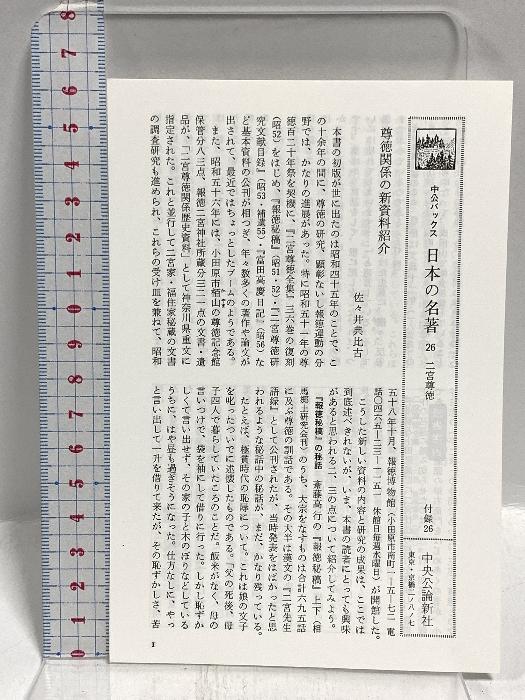 中公バックス 日本の名著 26 二宮尊徳 付録26
中央公論新社
東京・京橋二ノ八ノ七
尊徳関係の新資料紹介
佐々井典比古
本書の初版が世に出たのは昭和四十五年のことで、こ
の十余年の間に、尊徳の研究、顕彰ないし報徳運動の分
野では、かなりの進展があった。特に昭和五十一年の尊
徳百二十年祭を契機に、『二宮尊徳全集』三六巻の復刻
(昭52)をはじめ、『報徳秘稿』(昭51・52)・『二宮尊徳研
究文献目録』(昭53・補遺55)・『富田高慶日記』(昭56)な
ど基本資料の公刊が相つぎ、年々数多くの著作や論文が
出されて、最近ではちょっとしたブームのようである。
また、昭和五十六年には、小田原市栢山の尊徳記念館
保管分八三点、報徳二宮神社所蔵分三二一点の文書・遺
品が、「二宮尊徳関係歴史資料」として神奈川県重文に
指定された。これと並行して二宮家・福住家秘蔵の文書
の調査研究も進められ、これらの受け皿を兼ねて、昭和
五十八年十月、報徳博物館(小田原市南町一-五-七二 電
話〇四六五-二三-一一五一 休館日毎週水曜日)が開館した。
こうした新しい資料の内容と研究の成果は、ここでは
到底述べきれないが、いま、本書の読者にとっても興味
があると思われる二、三の点について紹介してみよう。
『報徳秘稿』の秘話 斎藤高行の『報徳秘稿』上下(相
馬郷土研究会刊)のうち、大宗をなすものは合計六九五話
に及ぶ尊徳の訓話である。その大半は漢文の『二宮先生
語録』として公刊されたが、当時発表をはばかったと思
われるような秘話中の秘話が、まだ、かなり残っている。
たとえば、極貧時代の恥辱について。これは娘の文子
を叱ったついでに述懐したものである。「父の死後、母
子四人で暮らしていたころのことだ。飯米がなく、母の
言いつけで、袋を袖にして借りに行った。しかし恥ずか
しくて言い出せず、その家の子と木のぼりなどしている
うちに、はや昼も過ぎそうになった。仕方なしに、やっ
と言い出して一升を借りて来たが、その恥ずかしさ、苦
1
8
7
6
5
4
3
2
1
0
1
2
3
4
5
6
7
8
9
0
1
2